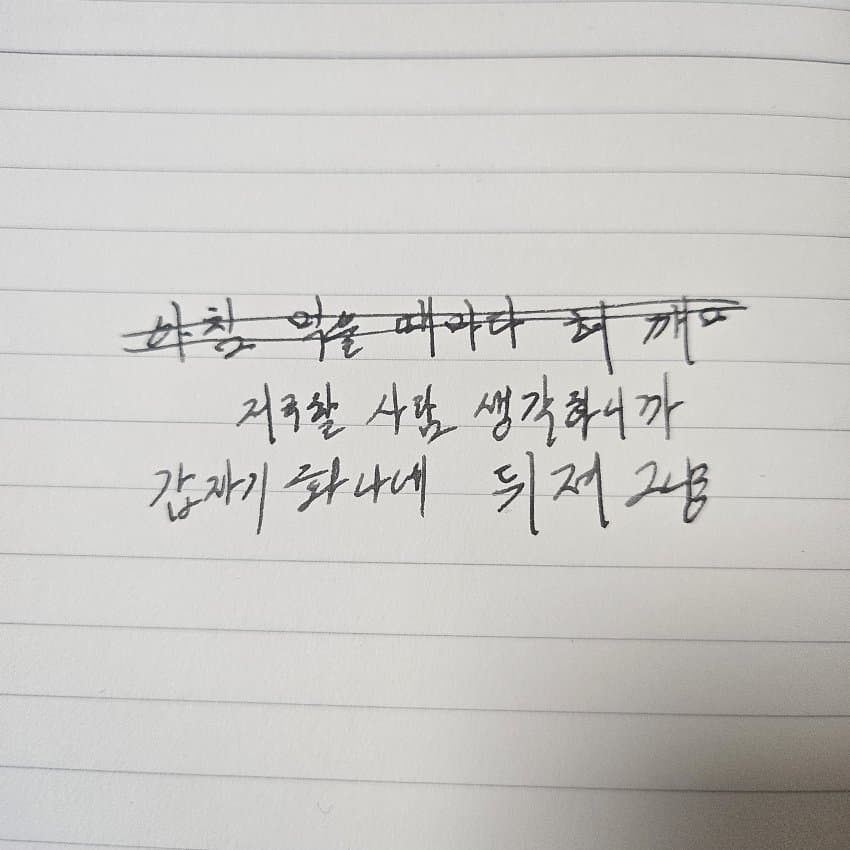 아침 먹을 때마다 혀 깨
저주할 사람 생각하니까
갑자기 화나네 뒤져 그냥